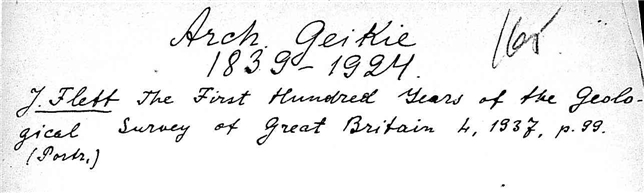 Arch. Geikie
1839-1924.
J. Flett The First Hundred Years of the Geolo-
gical Survey of Great Britain L, 1937, p. 99.
(Portr.)